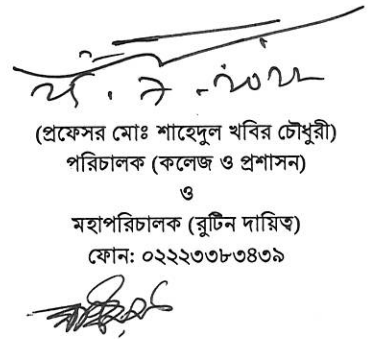 (প্রফেসর মোঃ শাহেদুল খবির চৌধুরী)
পরিচালক (কলেজ ও প্রশাসন)
ও
মহাপরিচালক (রুটিন দায়িত্ব)
ফোন: ০২২২৩৩৮৩৪৩৯